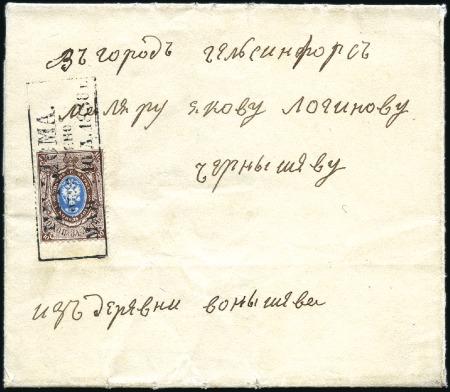 въ городъ гельсинфорсъ
маляру якову логинову
чернышеву
изъ деревни вонышева